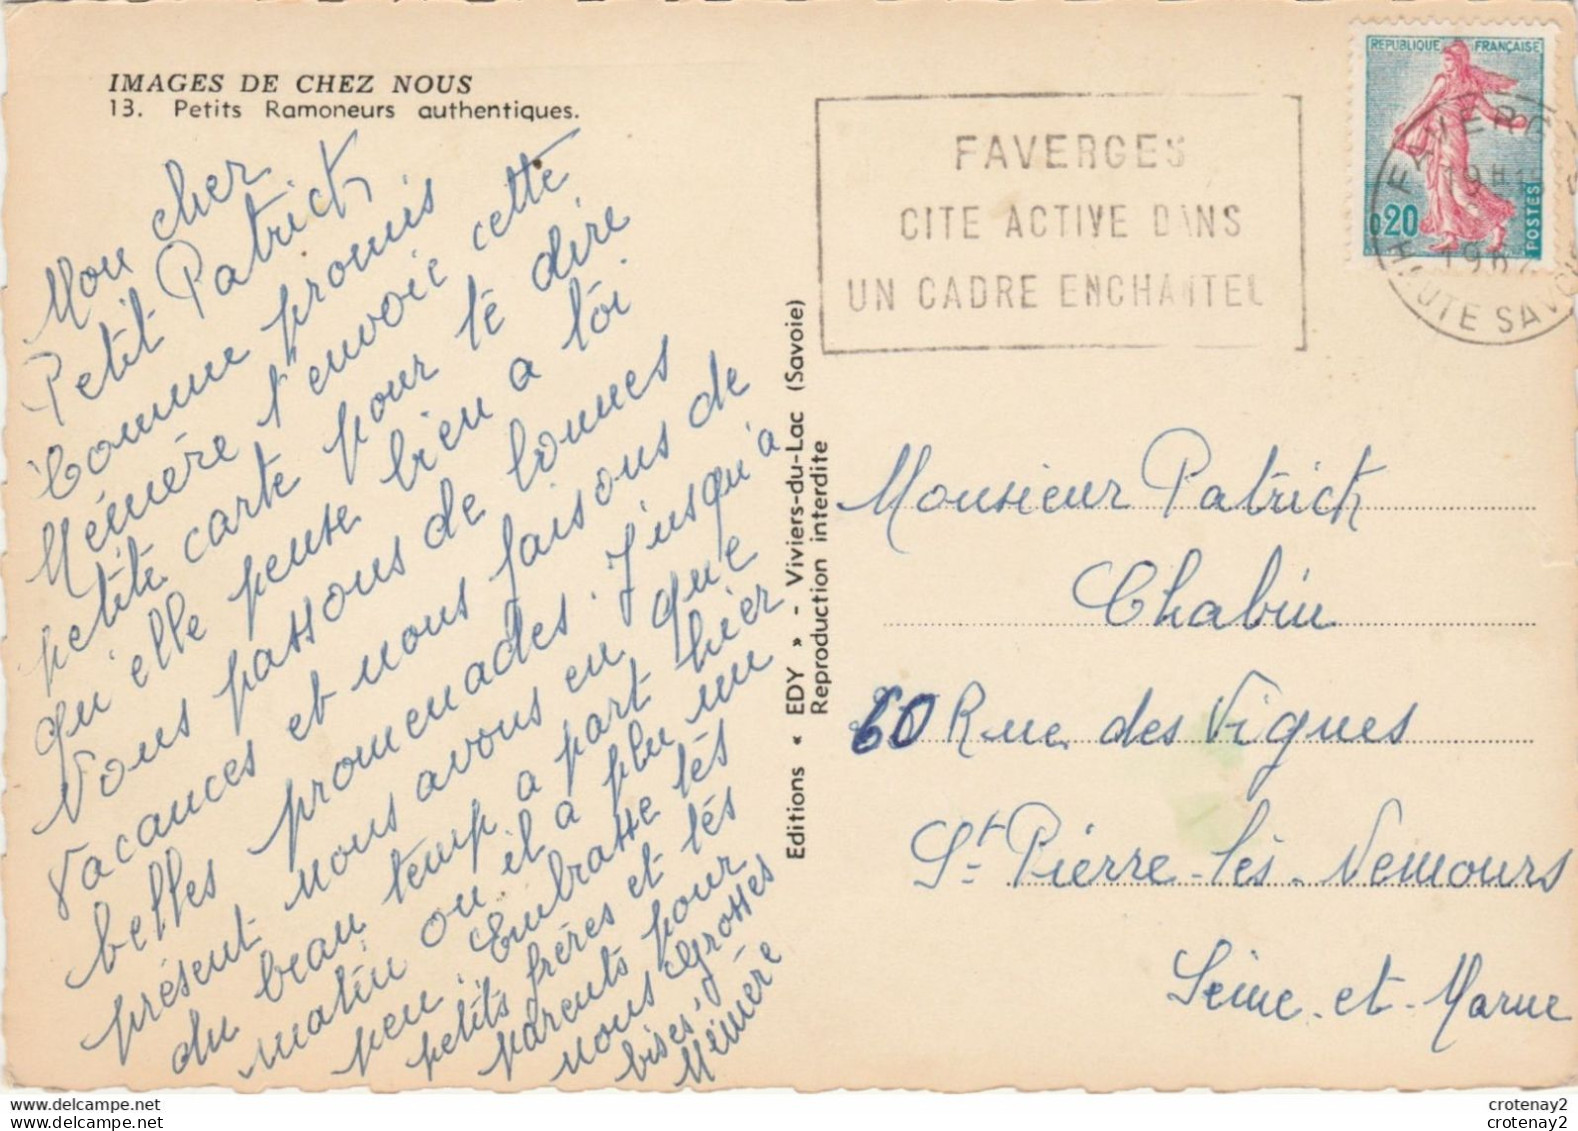 IMAGES DE CHEZ NOUS
13. Petits Ramoneurs authentiques.
Mon cher
Petit Patrick
Comme promis
Mémère t'envoie cette
petite carte pour te dire
qu'elle pense bien a tôi
Nous passons de bonnes
vacances et nous faisons de
belles promenades. Jusqu'à
présent nous avons eu que
du beau temp a part hier
matin ou il a plu un
peu. Embrasse tés
petits frères et tés
parents pour
nous grosses
bises,
Mémère
Editions « EDY » - Viviers-du-Lac (Savoie)
Reproduction interdite
FAVERGES
CITE ACTIVE DANS
UN CADRE ENCHANTEL
REPUBLIQUE FRANÇAISE
0,20
POSTES
FAVERG
19H15
196
HAUTE SAVOIE
Monsieur Patrick
Chabin
60 Rue des Vignes
St Pierre-lès-Nemours
Seine-et-Marne
crotenay2
crotenay2
https://www.delcampe.net
https://www.delcampe.net